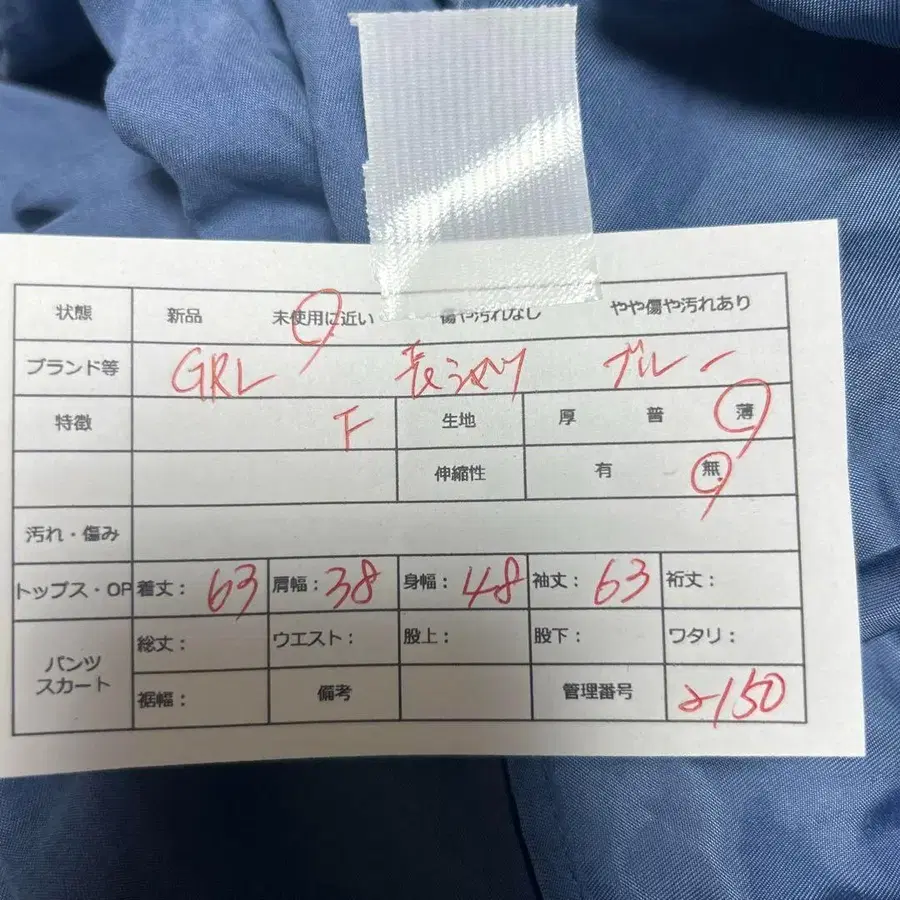 状態 新品 未使用に近い 傷や汚れなし やや傷や汚れあり
ブランド等 GRL 長シャツ ブルー
特徴 F 生地 厚 普 薄
伸縮性 有 無
汚れ・傷み
トップス・OP 着丈: 63 肩幅: 38 身幅: 48 袖丈: 63 裄丈:
パンツ スカート 総丈: ウエスト: 股上: 股下: ワタリ:
裾幅: 備考 管理番号 2150